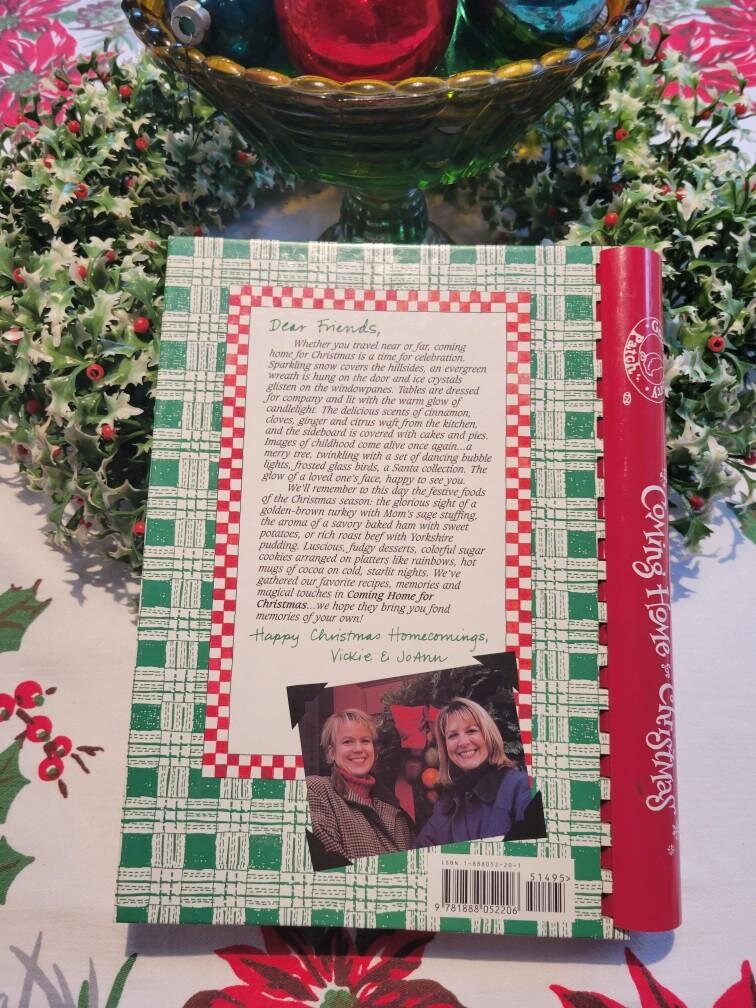 Dear Friends,
Whether you travel near or far, coming
home for Christmas is a time for celebration.
Sparkling snow covers the hillsides, an evergreen
wreath is hung on the door and ice crystals
glisten on the windowpanes. Tables are dressed
for company and lit with the warm glow of
candlelight. The delicious scents of cinnamon,
cloves, ginger and citrus waft from the kitchen,
and the sideboard is covered with cakes and pies.
Images of childhood come alive once again...a
merry tree, twinkling with a set of dancing bubble
lights, frosted glass birds, a Santa collection. The
glow of a loved one's face, happy to see you.
We'll remember to this day the festive foods
of the Christmas season: the glorious sight of a
golden-brown turkey with Mom's sage stuffing,
the aroma of a savory baked ham with sweet
potatoes, or rich roast beef with Yorkshire
pudding. Luscious, fudgy desserts, colorful sugar
cookies arranged on platters like rainbows, hot
mugs of cocoa on cold, starlit nights. We've
gathered our favorite recipes, memories and
magical touches in Coming Home for
Christmas...we hope they bring you fond
memories of your own!
Happy Christmas Homecomings,
Vickie & JoAnn
ISBN 1-888052-20-1
51495>
9 781888 052206
Patch
Coming Home for Christmas